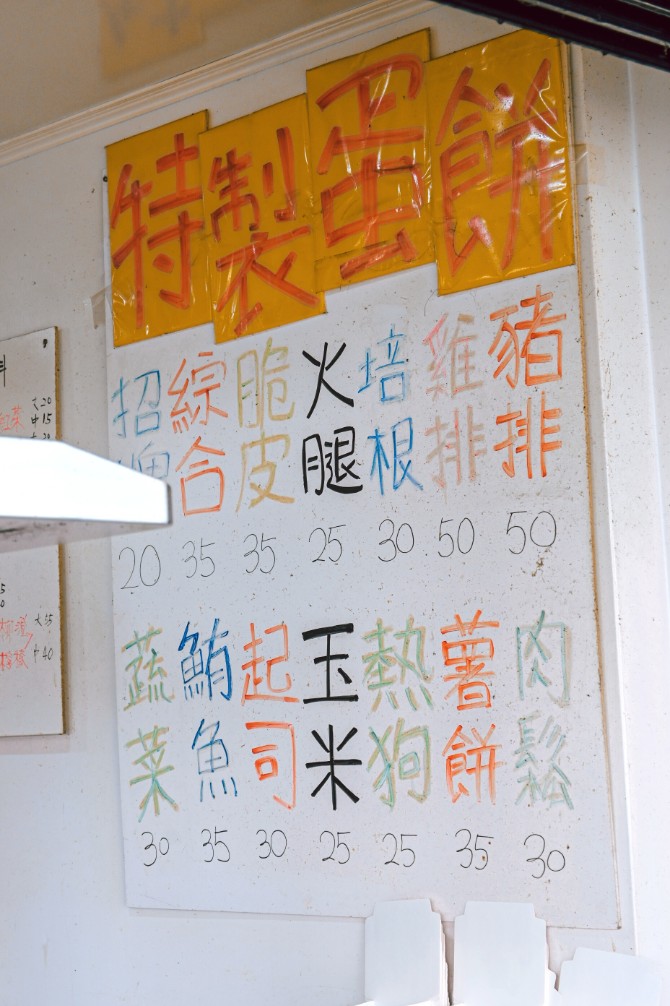 特製蛋餅
招 綜合 脆皮 火腿 培根 雞排 豬排
20 35 35 25 30 50 50
蔬菜 鮪魚 起司 玉米 熱狗 薯餅 肉鬆
30 35 30 25 25 35 30
料
紅茶 大20
中15